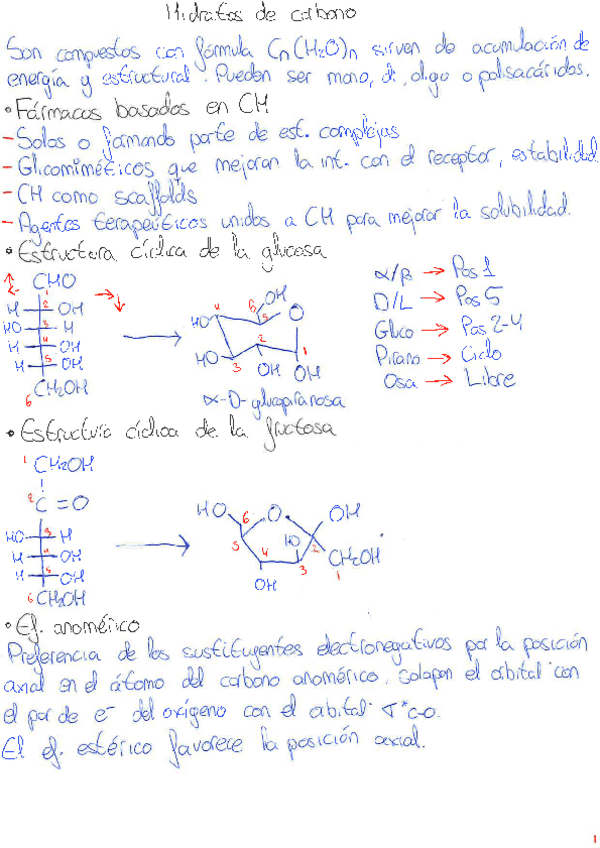 Hidratos de carbono
Son compuestos con fórmula Cn(H2O)n sirven de acumulación de
energía y estructural. Pueden ser mono, di, oligo o polisacáridos.
• Fármacos basados en CH
- Solos o formando parte de est. complejas
- Glicomiméticos que mejoran la int. con el receptor, estabilidad
- CH como scaffolds
- Agentes terapeúticos unidos a CH para mejorar la solubilidad.
• Estructura cíclica de la glucosa
CHO
H 2 OH
HO 3 H
H 4 OH
H 5 OH
CH2OH
6
HO 4 6 OH 5 O
HO 3 2 OH OH 1
α-D-glucopiranosa
α/β → Pos 1
D/L → Pos 5
Gluco → Pos 2-4
Pirano → Ciclo
Osa → Libre
• Estructura cíclica de la fructosa
1 CH2OH
2 C=O
HO 3 H
H 4 OH
H 5 OH
6 CH2OH
HO 6 O OH
5 HO 2 CH2OH
4 3 1
OH
• Ef. anomérico
Preferencia de los sustituyentes electronegativos por la posición
axial en el átomo del carbono anomérico. Solapan el orbital con
el par de e- del oxígeno con el orbital σ*c-o.
El ef. estérico favorece la posición axial.
1